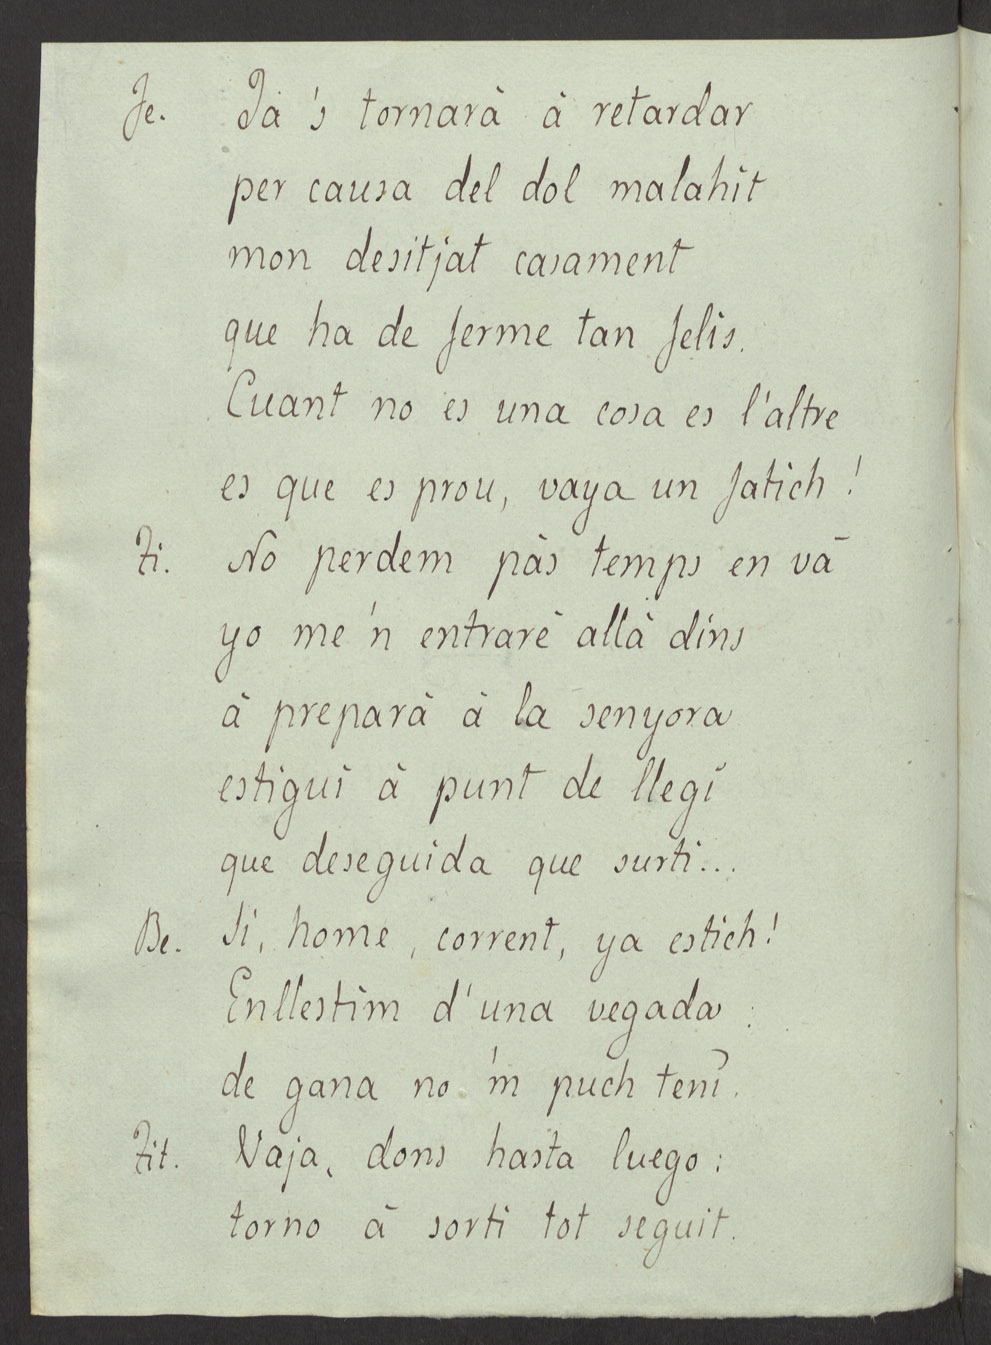 Je. Ja 's tornarà à retardar
per causa del dol malahit
mon desitjat casament
que ha de ferme tan felis.
Cuant no es una cosa es l'altre
es que es prou, vaya un fatich!
Ti. No perdem pàs temps en và
yo me 'n entraré allà dins
à preparà à la senyora
estigui à punt de llegí
que deseguida que surti...
Be. Si, home, corrent, ya estich!
Enllestim d'una vegada:
de gana no 'm puch tení.
Tit. Vaja, dons hasta luego:
torno à sorti tot seguit.